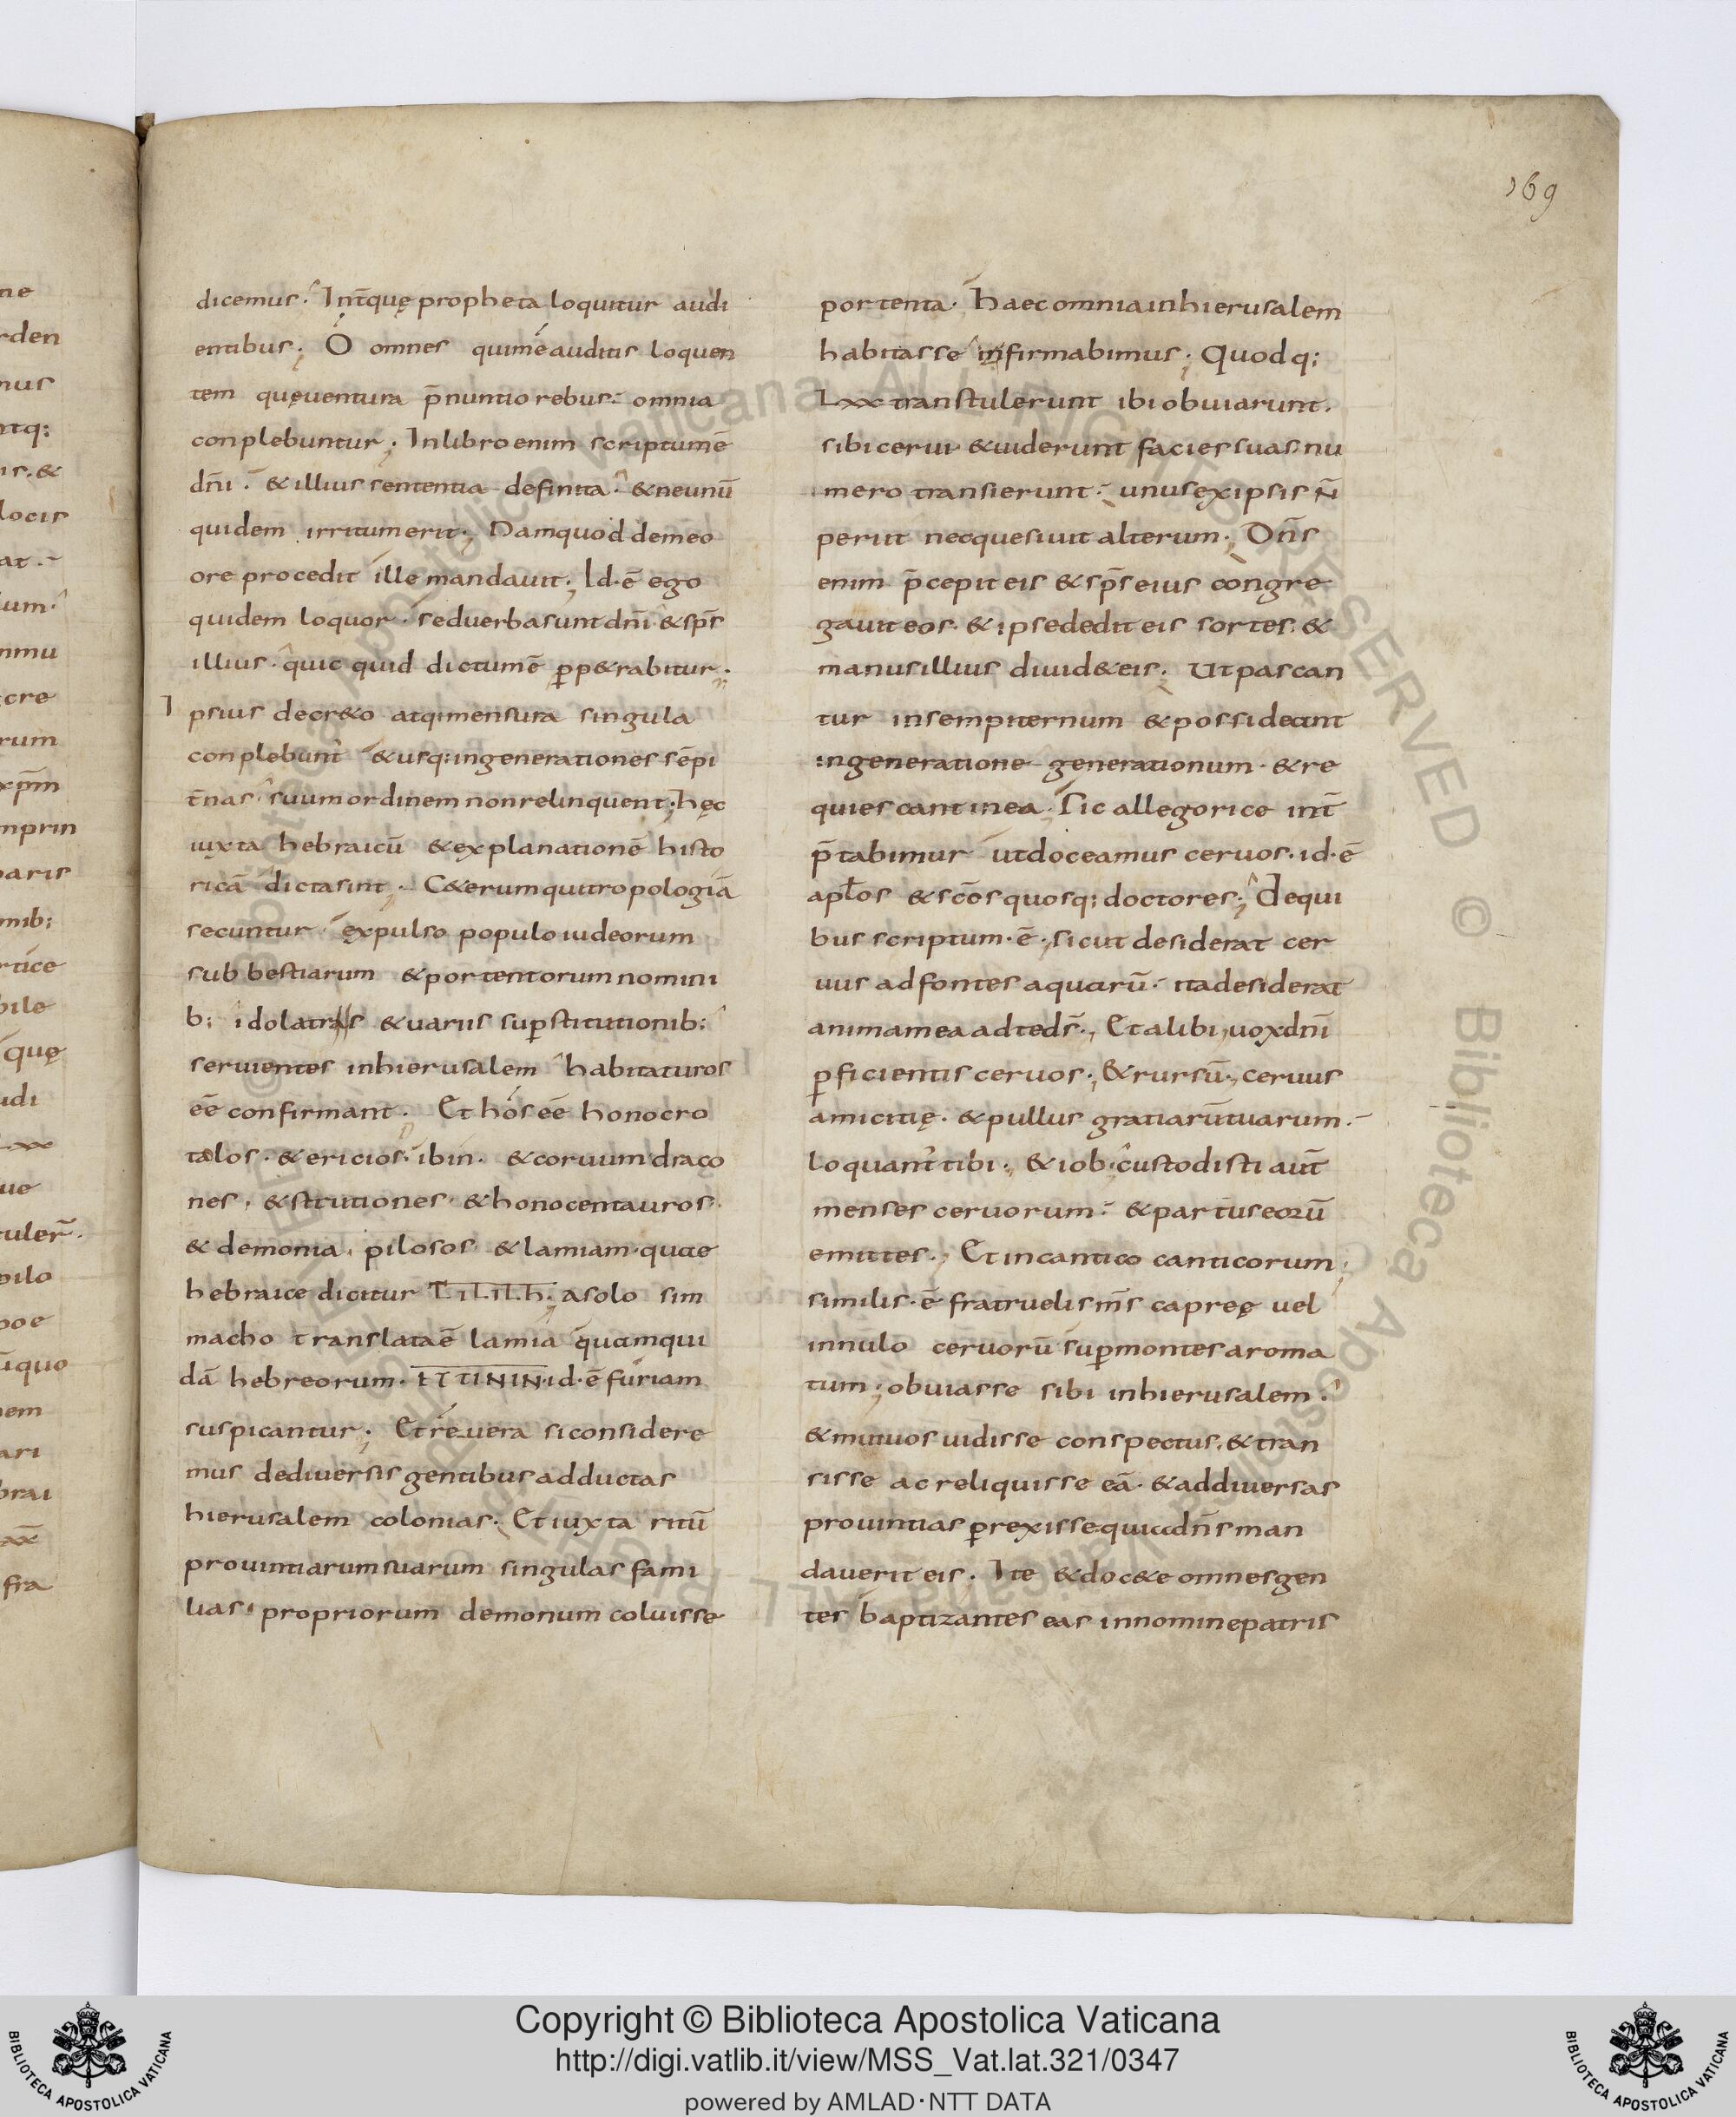 169
dicemus. Int̄quę propheta loquitur audi
entibus; O omnes qui me auditis loquen
tem quę ventura p̄nuntio rebus omnia
conplebuntur; In libro enim scriptum ē
dn̄i. & illius sententia definita. & ne unū
quidem irritum erit; Nam quod de meo
ore procedit ille mandavit; Id. ē ego
quidem loquor. sed verba sunt dn̄i & sp̄s
illius. quic quid dictum ē ꝑp&rabitur;
Ipsius decr&o atq; mensura singula
conplebunt̄ & usq; in generationes sēpi
t̄nas suum ordinem non relinquent; hęc
iuxta hebraicū & explanationē histo
ricā dicta sint; C&erum qui tropologiā
secuntur. expulso populo iudeorum
sub bestiarum & portentorum nomini
b; idolatras & variis suꝑstitutionib;
servientes in hierusalem habitaturos
eē confirmant. Et hos eē honocro
talos. & ericios. ibin. & corvum draco
nes. & strutiones & honocentauros.
& demonia. pilosos & lamiam. quae
hebraice dicitur L̅I̅L̅I̅L̅h̅. a solo sim
macho translata ē lamia quam qui
dā hebreorum. id. ē furiam
suspicantur; Et re vera si considere
mus de diversis gentibus adductas
hierusalem colonias. Et iuxta ritū
provintiarum suarum singulas fami
lias. propriorum demonum coluisse
portenta. haec omnia in hierusalem
habitasse firmabimus; Quodq;
Lxx transtulerunt ibi obviarunt.
sibi cervi & viderunt facies suas nu
mero transierunt. unus ex ipsis n̄
periit nec quesivit alterum; Dn̄s
enim p̄cepit eis & sp̄s eius congre
gavit eos. & ipse dedit eis sortes. &
manus illius divid& eis; Ut pascan
tur in sempiternum & possideant
in generatione generationum. & re
quiescant in ea. Sic allegorice int̄
p̄tabimur ut doceamus cervos. id. ē
apl̄os & scōs quosq; doctores; De qui
bus scriptum. ē. sicut desiderat cer
vus ad fontes aquarū. ita desiderat
anima mea ad te ds̄; Et alibi, vox dn̄i
ꝑficientis cervos; & rursū; cervus
amicitię. & pullus gratiarū tuarum.
loquant̄ tibi; & iob. custodisti aut̄
menses cervorum. & partus eorū
emittes; Et in cantico canticorum;
similis. ē fratruelis ms̄ capreę vel
innulo cervorū suꝑ montes aroma
tum; obviasse sibi in hierusalem.
& mutuos vidisse conspectus. & tran
sisse ac reliquisse eā. & ad diversas
provintias ꝑrexisse quia dn̄s man
daverit eis. Ite & doc&e omnes gen
tes baptizantes eas in nomine patris
Copyright © Biblioteca Apostolica Vaticana
http://digi.vatlib.it/view/MSS_Vat.lat.321/0347
powered by AMLAD·NTT DATA